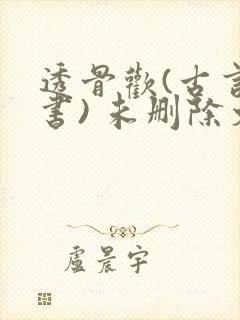 透骨歡(古言
書)未刪除
盧晨宇